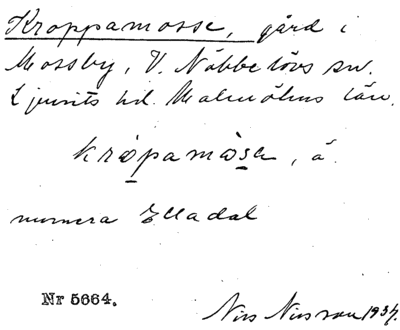 Kroppamosse, gård i
Mossby, V. Nöbbelövs sn.
Ljunits hd. Malmöhus län.
kråpamåsa, å
numera Elladal
Nr 5664.
Nils Nilsson 1934.